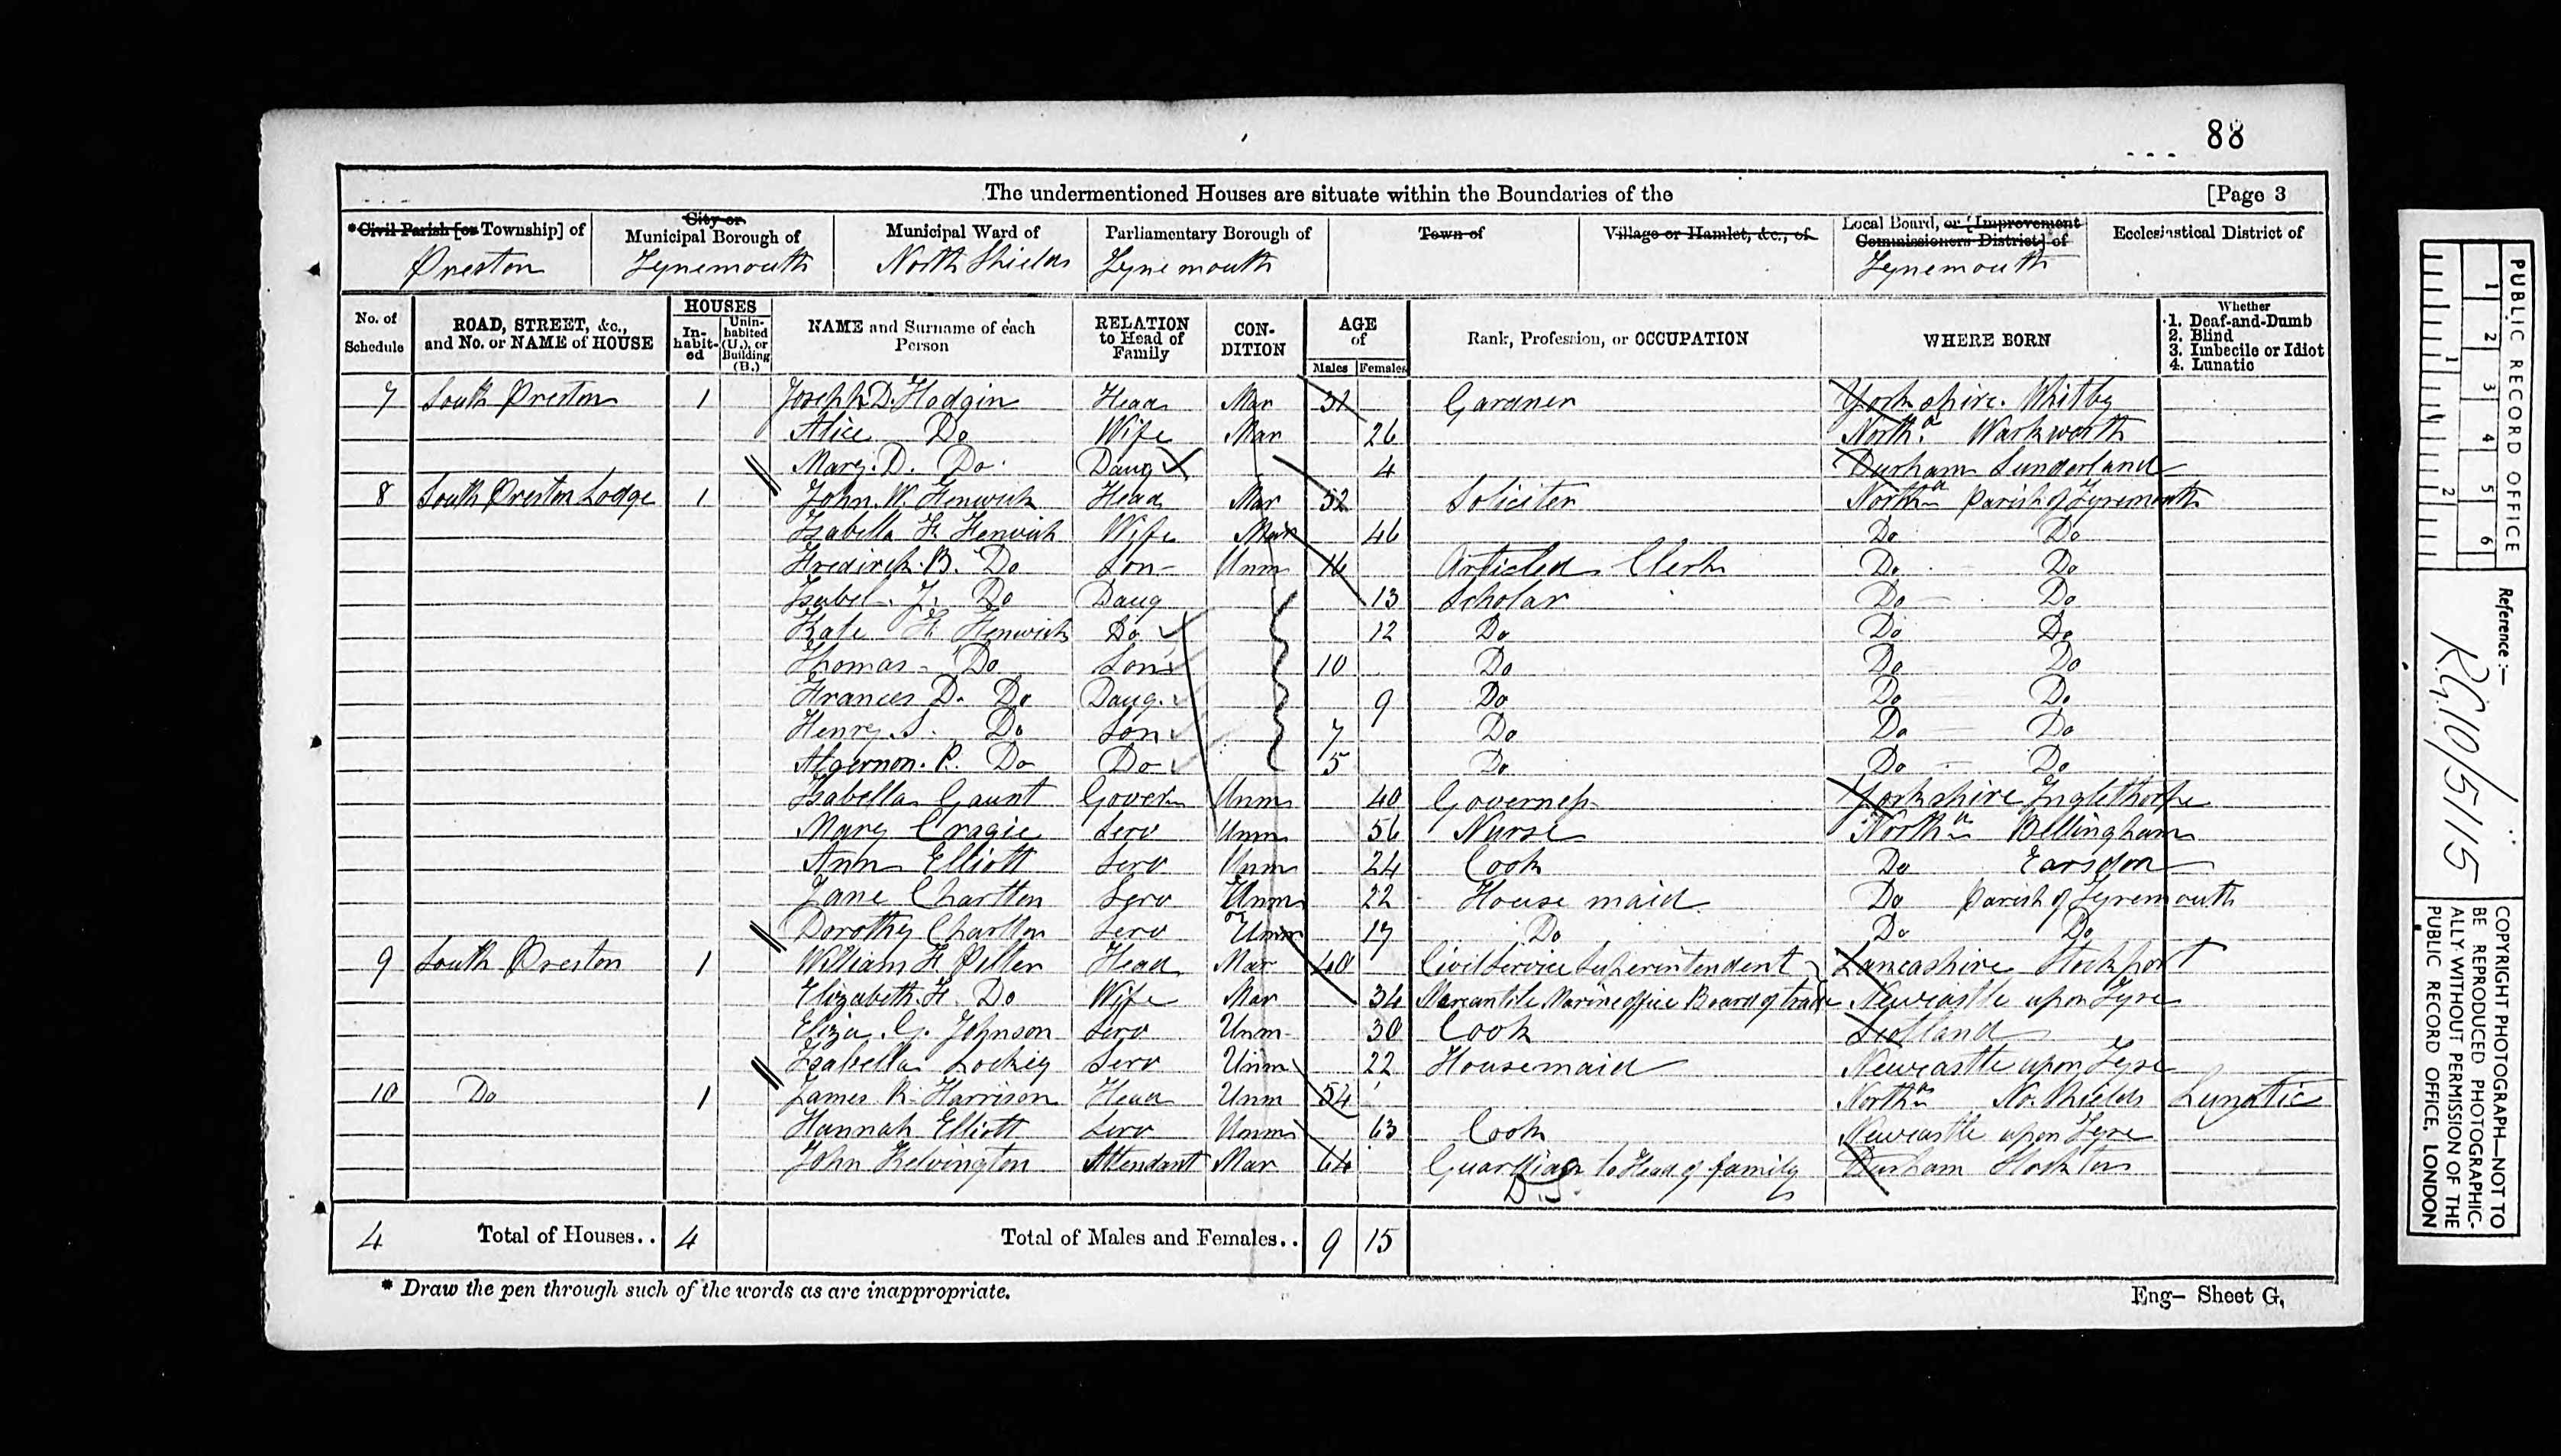 88
The undermentioned Houses are situate within the Boundaries of the [Page 3
*Civil Parish [or Township] of City or Municipal Borough of Municipal Ward of Parliamentary Borough of Town of Village or Hamlet, &c., of Local Board, or [Improvement Commissioners District] of Ecclesiastical District of
Preston Tynemouth North Shields Tynemouth Tynemouth
No. of Schedule ROAD, STREET, &c., and No. or NAME of HOUSE HOUSES In-habit-ed Unin-habited (U.), or Building (B.) NAME and Surname of each Person RELATION to Head of Family CON-DITION AGE of Males Females Rank, Profession, or OCCUPATION WHERE BORN Whether 1. Deaf-and-Dumb 2. Blind 3. Imbecile or Idiot 4. Lunatic
7 South Preston 1 Joseph D. Hodgin Head Mar 31 Gardner Yorkshire. Whitby
Alice Do Wife Mar 26 North.a Warkworth
Mary. D. Do Daug 4 Durham Sunderland
8 South Preston Lodge 1 John. W. Fenwick Head Mar 52 Soliciter North.a Parish of Tynemouth
Isabella F. Fenwick Wife Mar 46 Do Do
Fredirck. B. Do Son Unm 16 Articled Clerk Do Do
Isabel. J. Do Daug 13 Scholar Do Do
Kate F. Fenwick Do 12 Do Do Do
Thomas Do Son 10 Do Do Do
Frances D. Do Daug. 9 Do Do Do
Henry. S. Do Son 7 Do Do Do
Algernon. P. Do Do 5 Do Do Do
Isabella Gaunt Govern Unm 40 Governess Yorkshire Inglethorpe
Mary Cragie Serv Unm 56 Nurse North.a Bellingham
Ann Elliott Serv Unm 24 Cook Do Earsdon
Jane Charlton Serv Unm 22 House maid Do Parish of Tynemouth
Dorothy Charlton Serv Unm 17 Do Do Do
9 South Preston 1 William H. Peller Head Mar 40 Civil Service Superintendent Lancashire Stockport
Elizabeth. F. Do Wife Mar 34 Marcantile Marine office Board of trade Newcastle upon Tyne
Eliza. G. Johnson Serv Unm 30 Cook Scotland
Isabella Lockey Serv Unm 22 Housemaid Newcastle upon Tyne
10 Do 1 James R. Harrison Head Unm 54 North.a No. Shields Lunatic
Hannah Elliott Serv Unm 63 Cook Newcastle upon Tyne
John Kelvington Attendant Mar 64 Guardian to Head of family Durham Stockton
4 Total of Houses.. 4 Total of Males and Females.. 9 15
* Draw the pen through such of the words as are inappropriate.
Eng- Sheet G.
PUBLIC RECORD OFFICE
1 2 3 4 5 6
1 2
Reference:-
R.G.10/5115
COPYRIGHT PHOTOGRAPH—NOT TO
BE REPRODUCED PHOTOGRAPHIC-
ALLY WITHOUT PERMISSION OF THE
PUBLIC RECORD OFFICE, LONDON